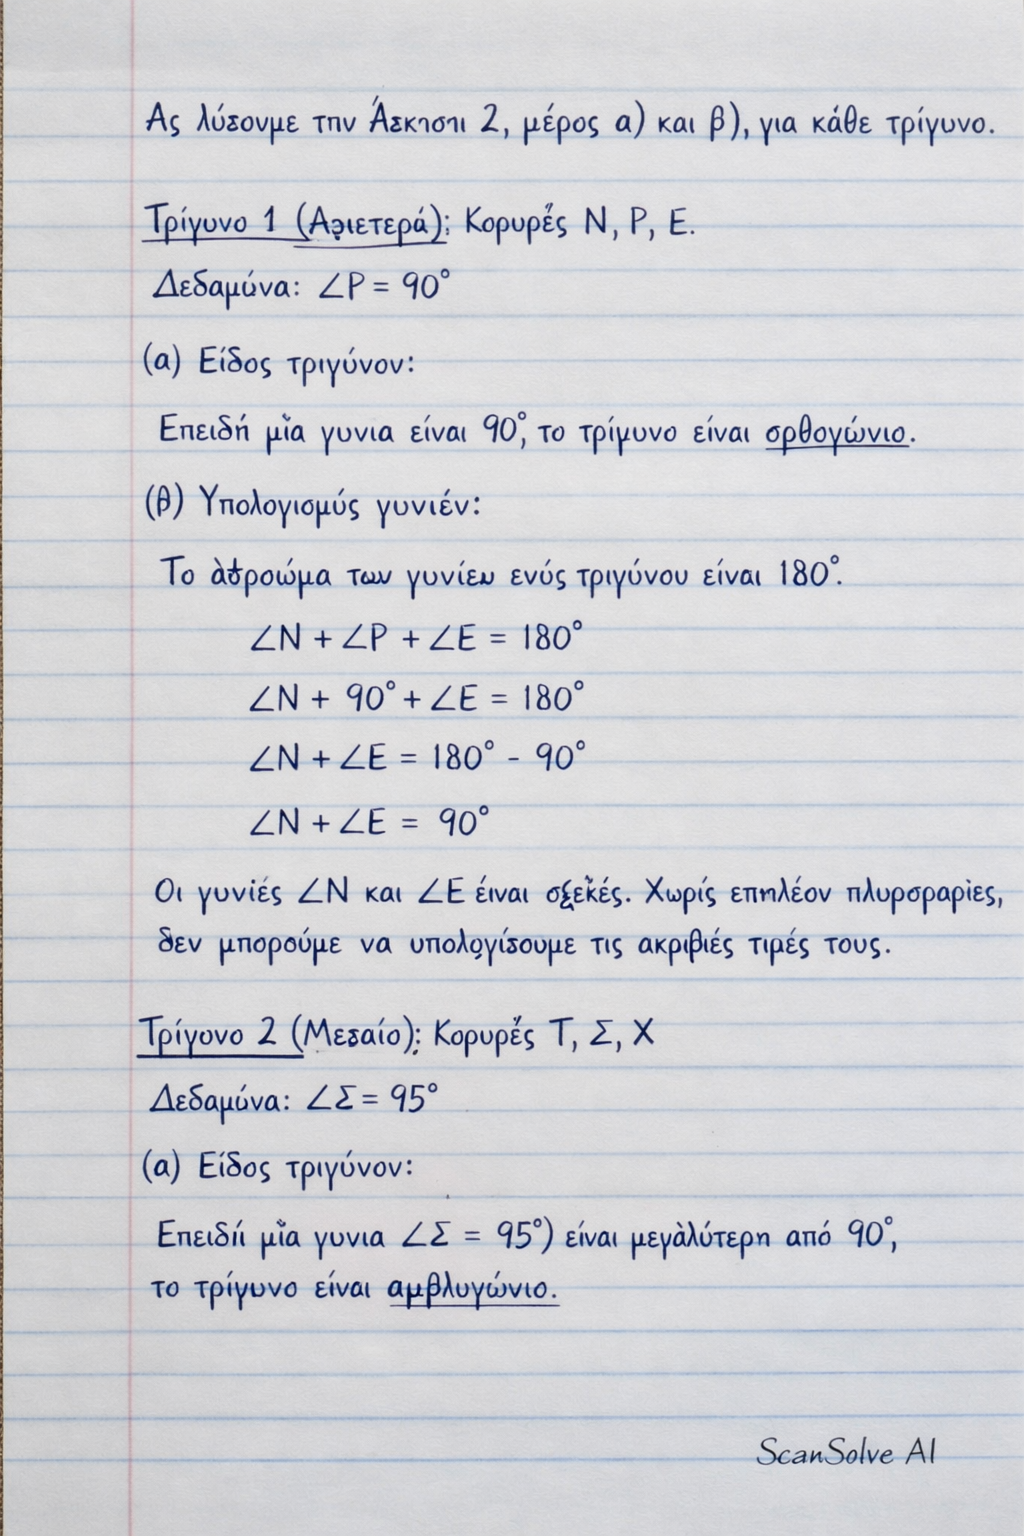 Ας λύσουμε την Άσκηση 2, μέρος α) και β), για κάθε τρίγυνο.
Τρίγυνο 1 (Αριετερά): Κορυρές Ν, Ρ, Ε.
Δεδαμύνα: ∠Ρ = 90°
(α) Είδος τριγύνον:
Επειδή μία γυνια είναι 90°, το τρίμυνο είναι ορθογώνιο.
(β) Υπολογισμύς γυνιέν:
Το των γυνίεν ενός τριγύνου είναι 180°.
∠Ν + ∠Ρ + ∠Ε = 180°
∠Ν + 90° + ∠Ε = 180°
∠Ν + ∠Ε = 180° - 90°
∠Ν + ∠Ε = 90°
Οι γυνιές ∠Ν και ∠Ε έιναι Χωρίς επηλέον πλυροραρίες,
δεν μπορούμε να υπολογίσουμε τις ακριβιές τιμές τους.
Τρίγονο 2 (Μεσαίο): Κορυρές Τ, Σ, Χ
Δεδαμύνα: ∠Σ = 95°
(α) Είδος τριγύνον:
Επειδίί μία γυνια ∠Σ = 95°) είναι μεγὰλύτερη από 90°,
το τρίγυνο είναι αμβλυγώνιο.
ScanSolve AI